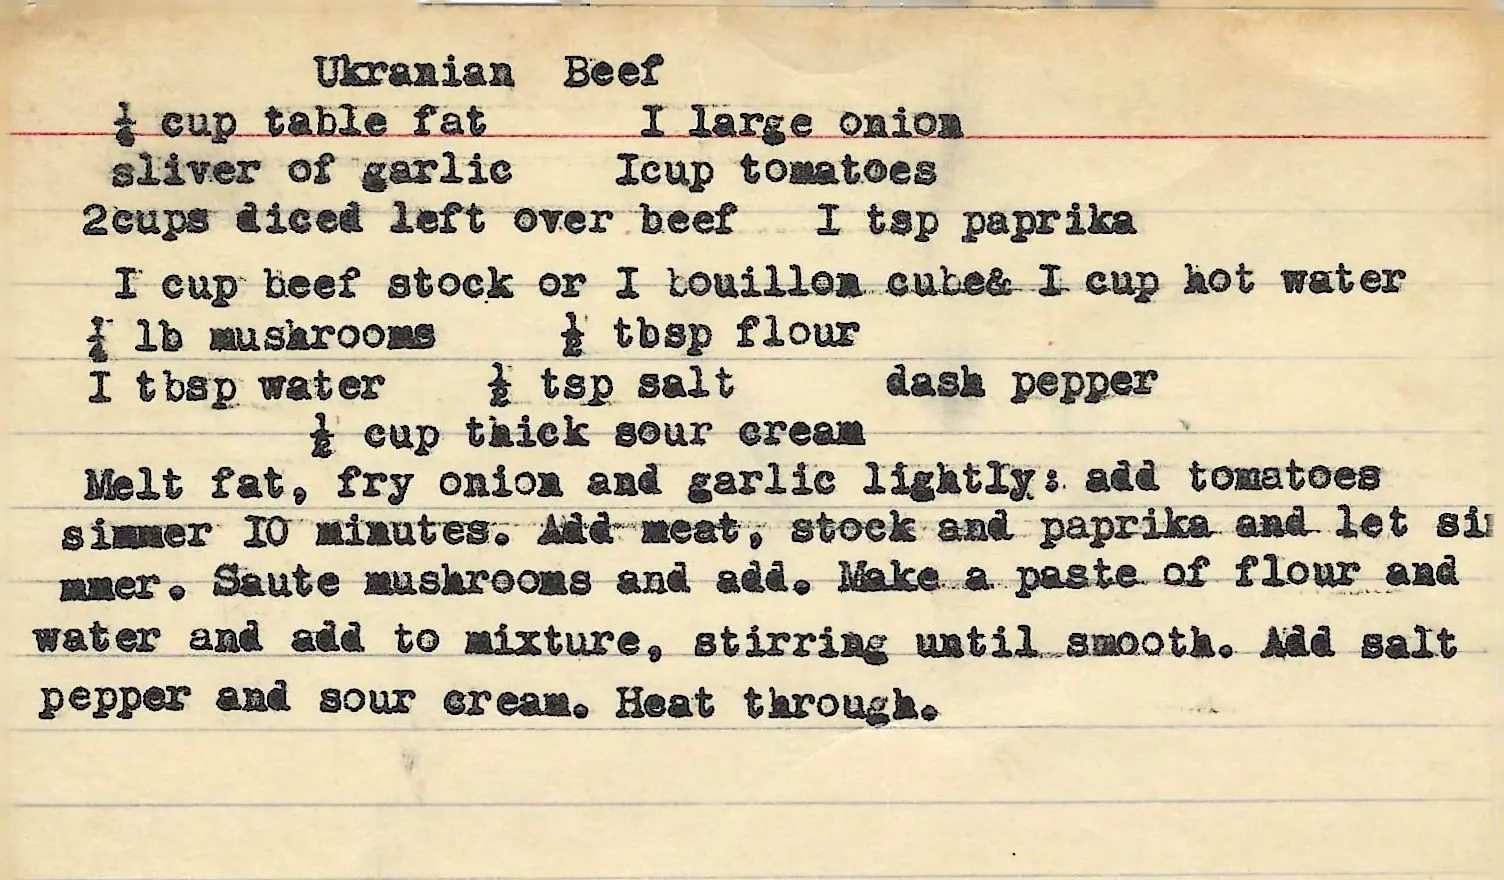 Ukranian Beef
¼ cup table fat I large onion
sliver of garlic Icup tomatoes
2cups diced left over beef I tsp paprika
I cup beef stock or I bouillon cube& I cup hot water
¼ lb mushrooms ½ tbsp flour
I tbsp water ½ tsp salt dash pepper
½ cup thick sour cream
Melt fat, fry onion and garlic lightly: add tomatoes
simmer IO minutes. Add meat, stock and paprika and let sim
mmer. Saute mushrooms and add. Make a paste of flour and
water and add to mixture, stirring until smooth. Add salt
pepper and sour cream. Heat through.